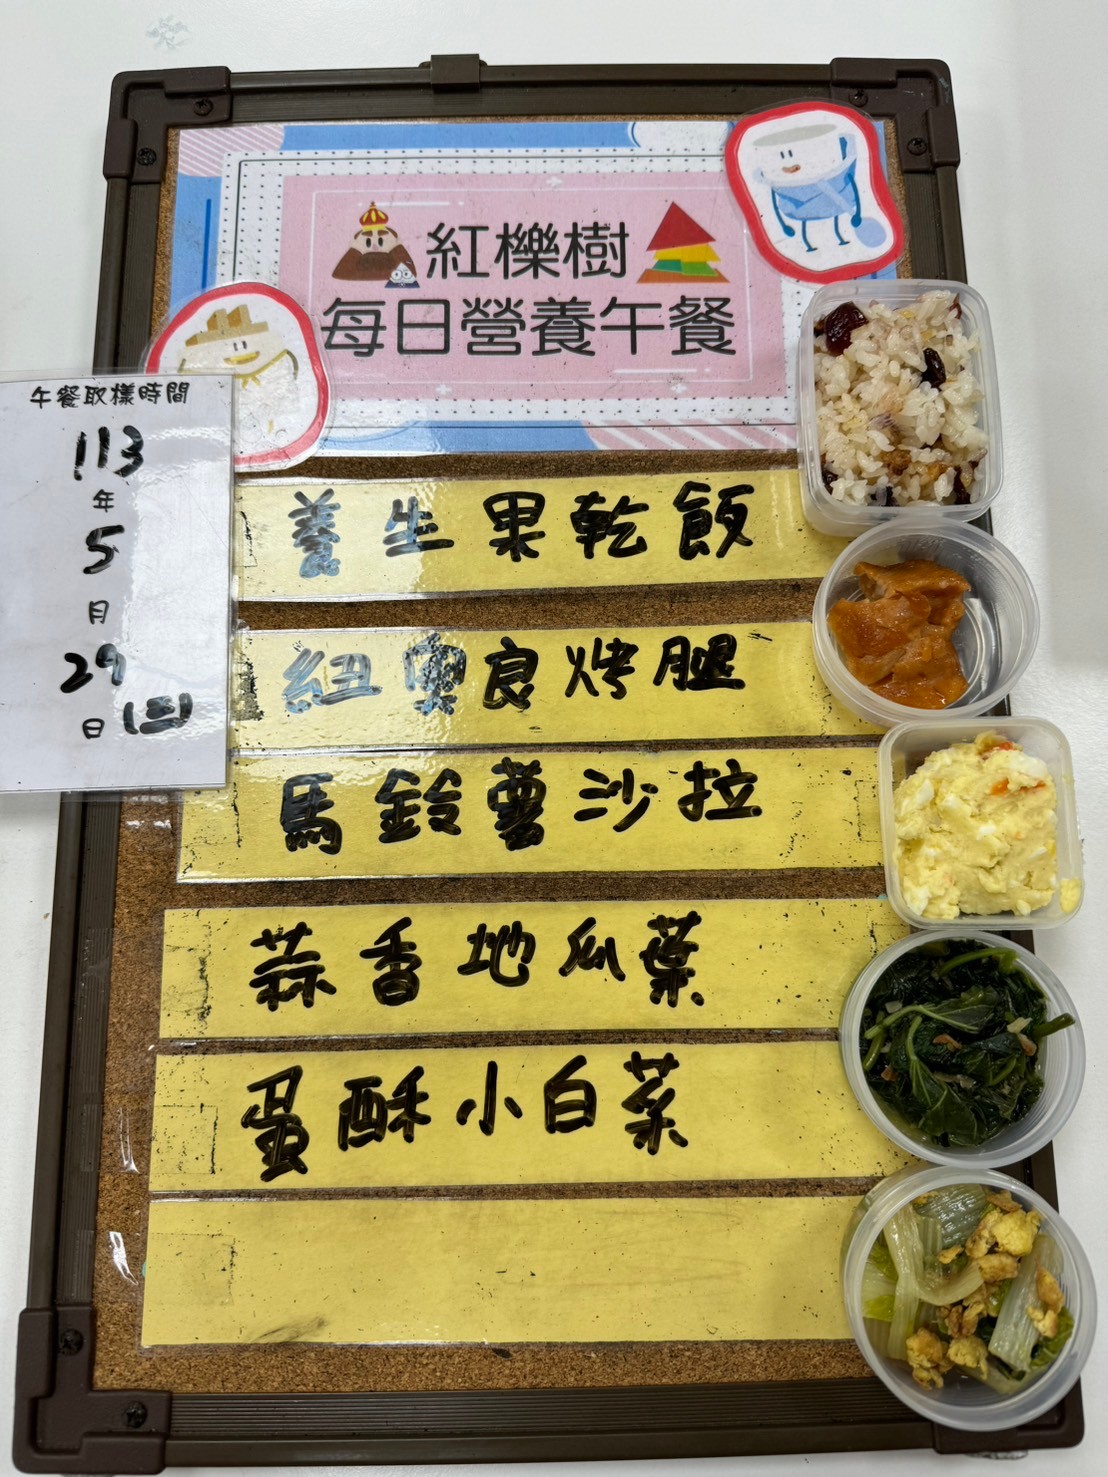 紅櫟樹
每日營養午餐
午餐取樣時間
113
年
5
月
29
日 (三)
養生果乾飯
紐奧良烤腿
馬鈴薯沙拉
蒜香地瓜葉
蛋酥小白菜